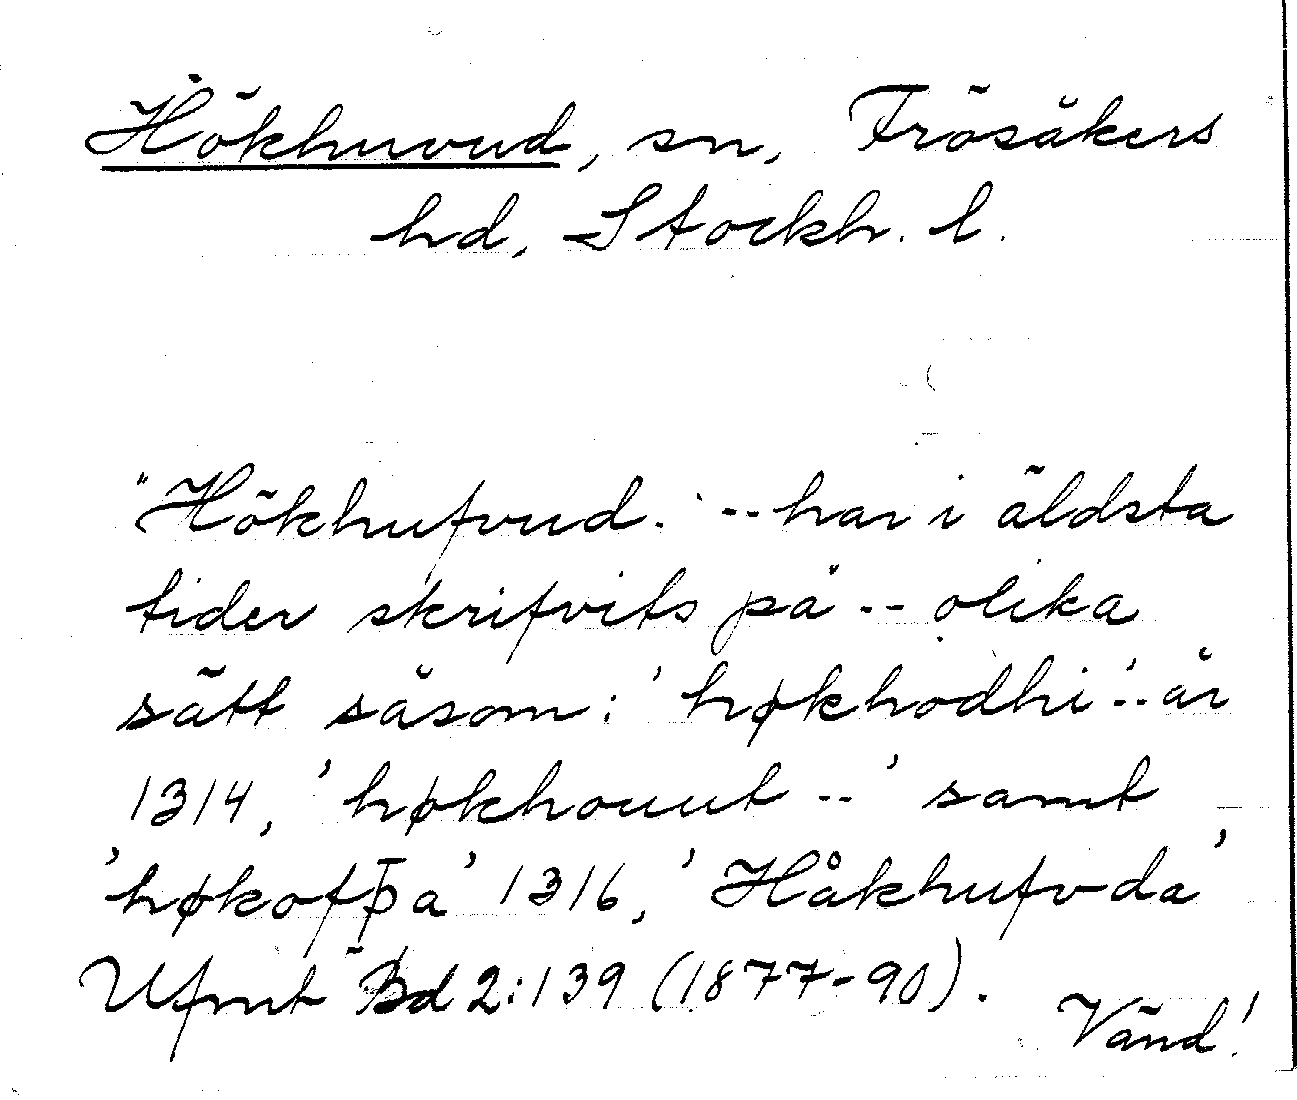 Hökhuvud, sn, Frösåkers
hd, Stockh. l.
"Hökhufvud. -- har i äldsta
tider skrifvits på -- olika
sätt såsom: 'høkhodhi'-- år
1314, 'høkhouut --' samt
'høkofþa' 1316, 'Håkhufvda'
Ufmt" Bd 2:139 (1877-90).
Vänd!